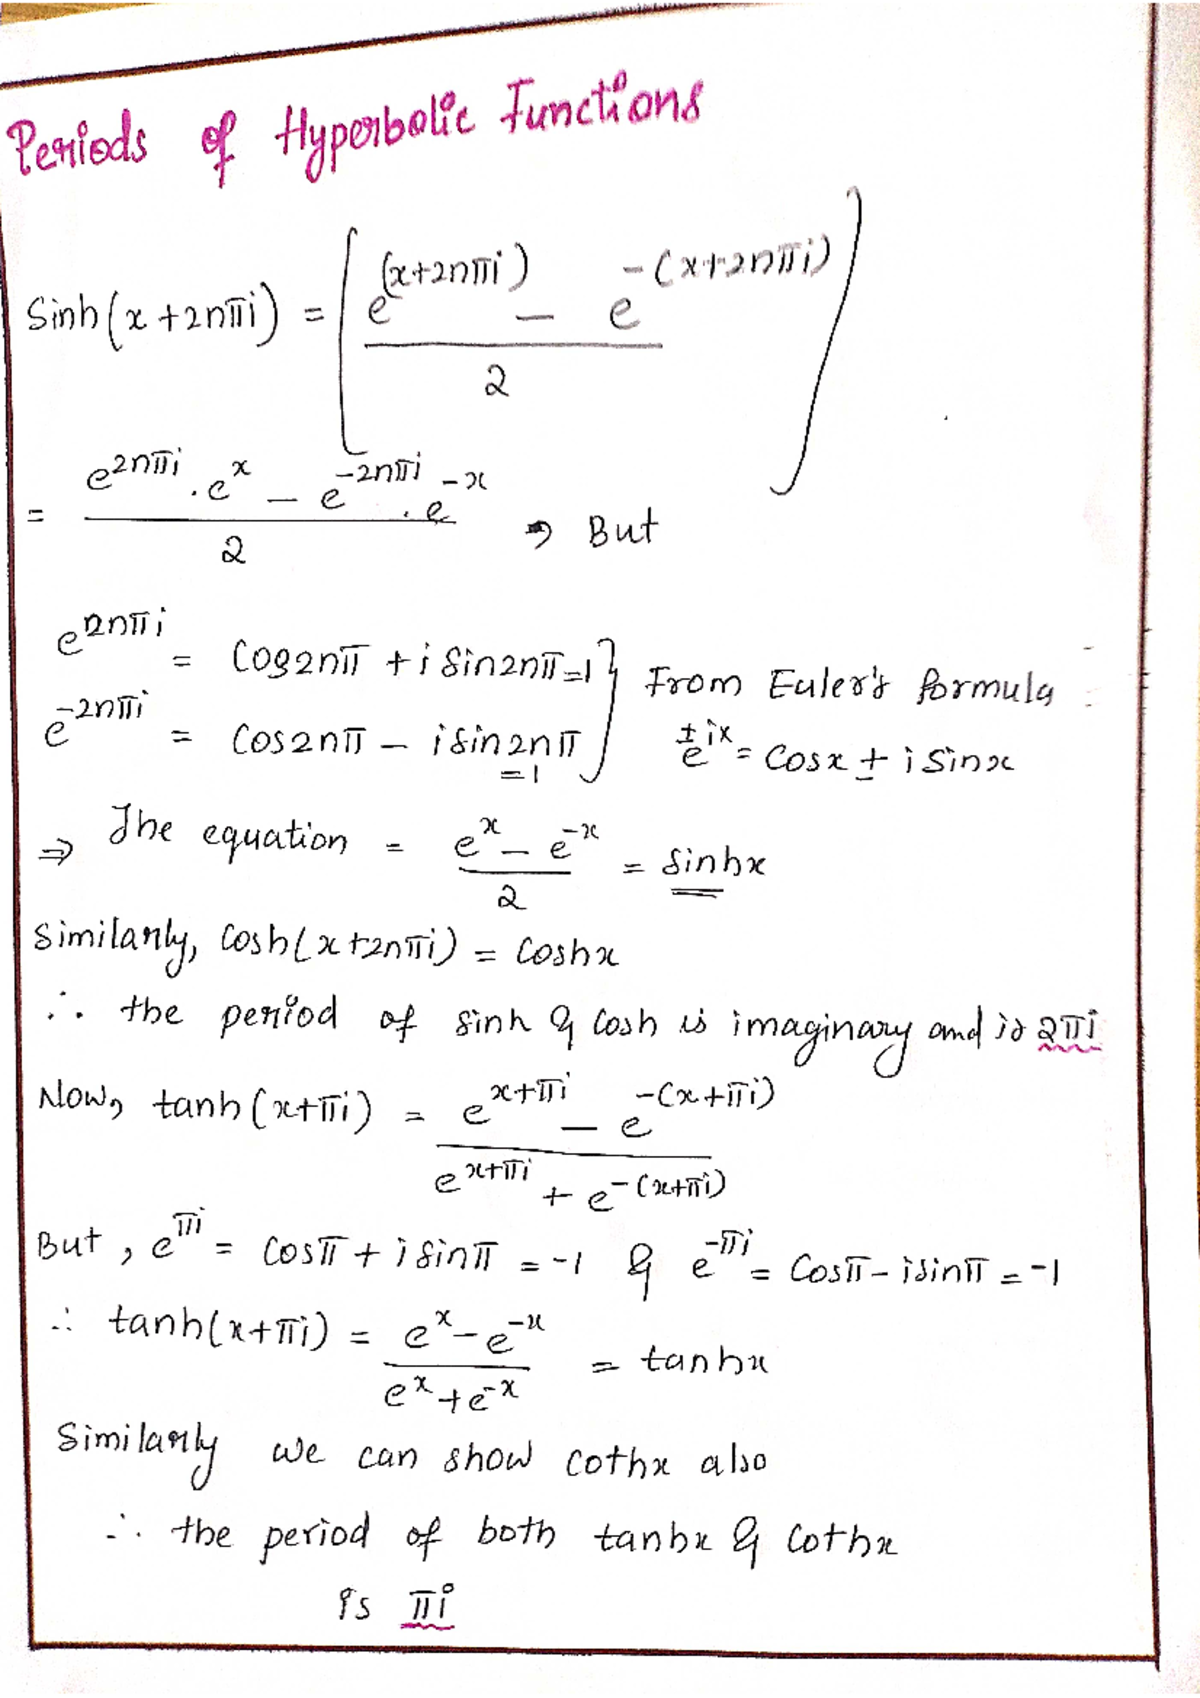 Periods of Hyperbolic Functions
Sinh(x+2nπi) = [e^(x+2nπi) - e^-(x+2nπi) / 2]
= e^2nπi . e^x - e^-2nπi . e^-x / 2 → But
e^2nπi = Cos2nπ + i Sin2nπ=1 }
e^-2nπi = Cos2nπ - isin2nπ =1
From Euler's formula
e^±ix = Cosx ± i Sinx
⇒ The equation = e^x - e^-x / 2 = Sinhx
Similarly, Cosh(x+2nπi) = Coshx
∴ the period of sinh & Cosh is imaginary and is 2πi
Now, tanh(x+πi) = e^x+πi - e^-(x+πi) / e^x+πi + e^-(x+πi)
But, e^πi = Cosπ + i Sinπ = -1 & e^-πi = Cosπ - isinπ = -1
∴ tanh(x+πi) = e^x - e^-x / e^x + e^-x = tanhx
Similarly we can show cothx also
∴ the period of both tanhx & Cothx
is πi